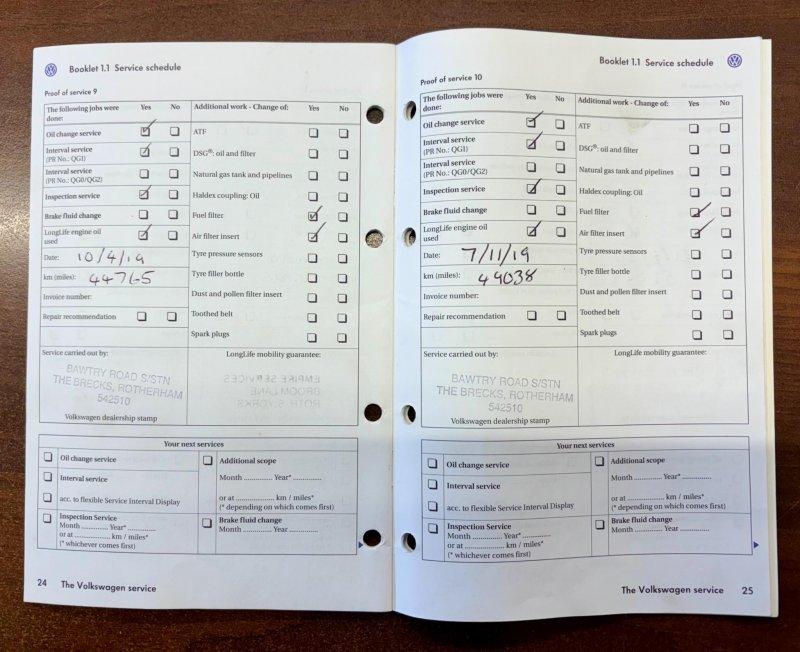 Booklet 1.1 Service schedule
Proof of service 9
The following jobs were done: Yes No
Oil change service
Interval service
(PR No.: QG1)
Interval service
(PR No.: QG0/QG2)
Inspection service
Brake fluid change
LongLife engine oil
used
Date: 10/4/19
km (miles): 44765
Invoice number:
Repair recommendation
Additional work - Change of: Yes No
ATF
DSG®: oil and filter
Natural gas tank and pipelines
Haldex coupling: Oil
Fuel filter
Air filter insert
Tyre pressure sensors
Tyre filler bottle
Dust and pollen filter insert
Toothed belt
Spark plugs
Service carried out by:
BAWTRY ROAD S/STN
THE BRECKS, ROTHERHAM
542510
Volkswagen dealership stamp
LongLife mobility guarantee:
Your next services
Oil change service
Interval service
acc. to flexible Service Interval Display
Inspection Service
Month ............ Year* ............
or at ............ km / miles*
(* whichever comes first)
Additional scope
Month ............ Year* ............
or at ............ km / miles*
(* depending on which comes first)
Brake fluid change
Month ............ Year ............
24 The Volkswagen service
Booklet 1.1 Service schedule
Proof of service 10
The following jobs were done: Yes No
Oil change service
Interval service
(PR No.: QG1)
Interval service
(PR No.: QG0/QG2)
Inspection service
Brake fluid change
LongLife engine oil
used
Date: 7/11/19
km (miles): 49038
Invoice number:
Repair recommendation
Additional work - Change of: Yes No
ATF
DSG®: oil and filter
Natural gas tank and pipelines
Haldex coupling: Oil
Fuel filter
Air filter insert
Tyre pressure sensors
Tyre filler bottle
Dust and pollen filter insert
Toothed belt
Spark plugs
Service carried out by:
BAWTRY ROAD S/STN
THE BRECKS, ROTHERHAM
542510
Volkswagen dealership stamp
LongLife mobility guarantee:
Your next services
Oil change service
Interval service
acc. to flexible Service Interval Display
Inspection Service
Month ............ Year* ............
or at ............ km / miles*
(* whichever comes first)
Additional scope
Month ............ Year* ............
or at ............ km / miles*
(* depending on which comes first)
Brake fluid change
Month ............ Year ............
The Volkswagen service 25